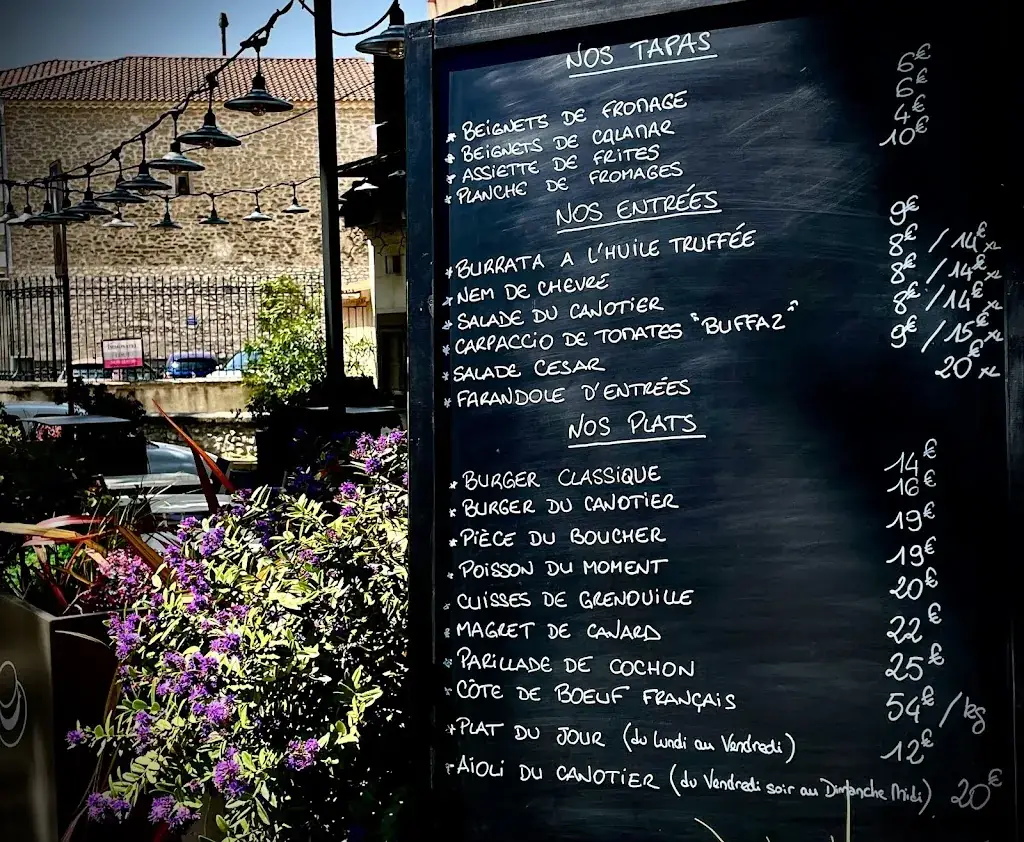 NOS TAPAS
* BEIGNETS DE FROMAGE 6€
* BEIGNETS DE CALAMAR 6€
* ASSIETTE DE FRITES 4€
* PLANCHE DE FROMAGES 10€
NOS ENTRÉES
* BURRATA A L'HUILE TRUFFÉE 9€
* NEM DE CHEVRE 8€ / 14€ XL
* SALADE DU CANOTIER 8€ / 14€ XL
* CARPACCIO DE TOMATES "BUFFAZ" 8€ / 14€ XL
* SALADE CESAR 9€ / 15€ XL
* FARANDOLE D'ENTRÉES 20€ XL
NOS PLATS
* BURGER CLASSIQUE 14€
* BURGER DU CANOTIER 16€
* PIÈCE DU BOUCHER 19€
* POISSON DU MOMENT 19€
* CUISSES DE GRENOUILLE 20€
* MAGRET DE CANARD 22€
* PARILLADE DE COCHON 25€
* CÔTE DE BOEUF FRANÇAIS 54€ / kg
* PLAT DU JOUR (du Lundi au Vendredi) 12€
* AIOLI DU CANOTIER (du Vendredi soir au Dimanche Midi) 20€